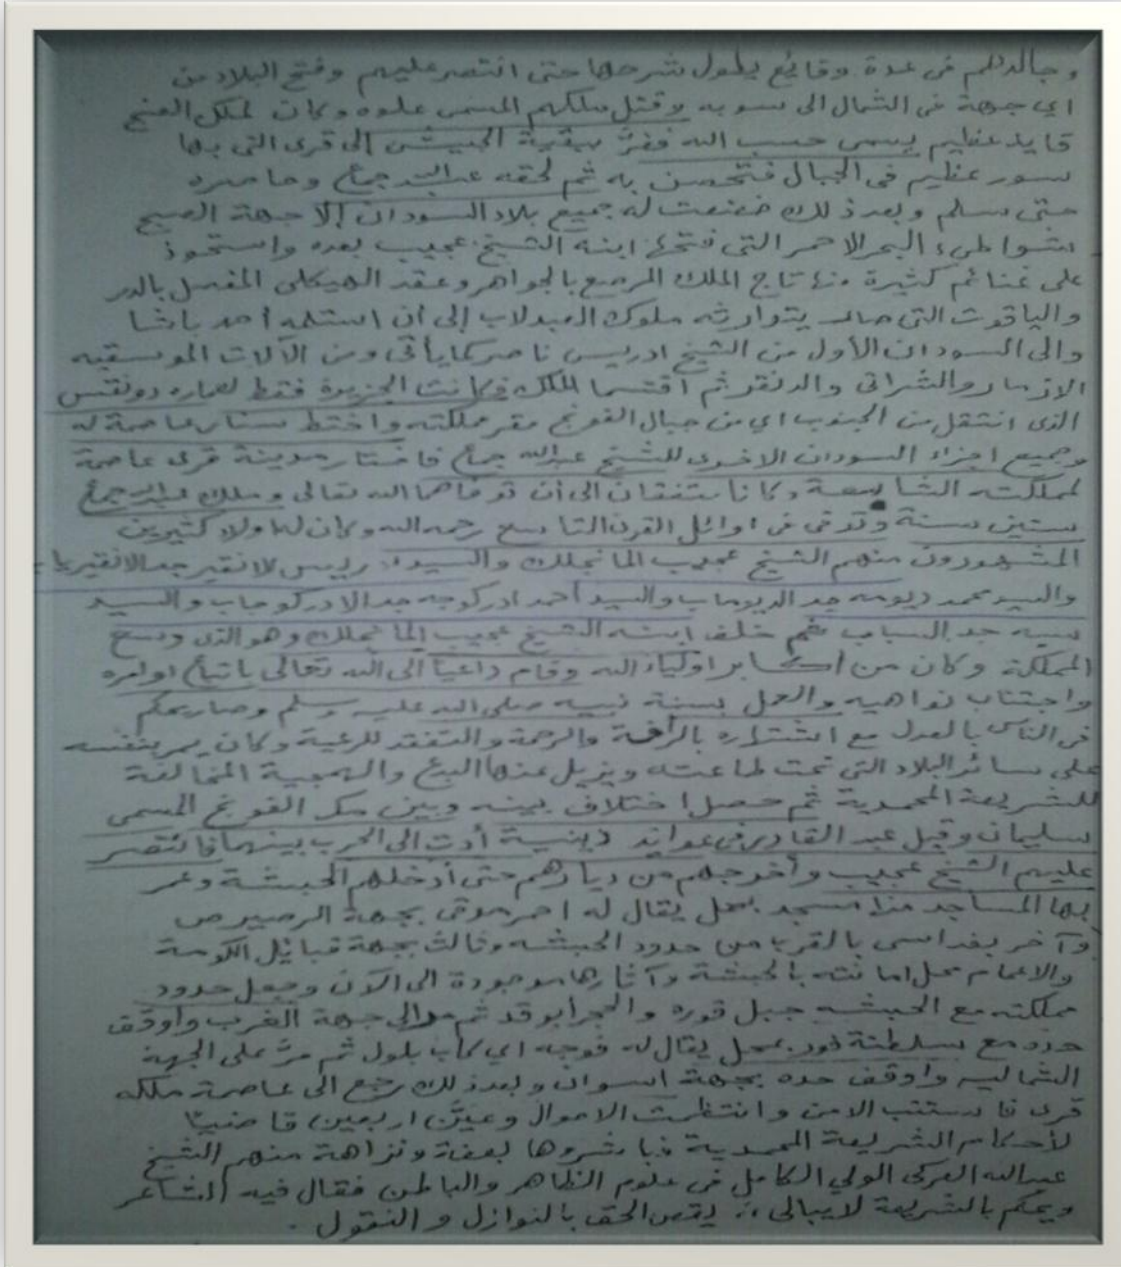 وجالدهم فى عدة وقائع يطول شرحها حتى انتصر عليهم وفتح البلاد من
اي جهة فى الشمال الى سوبه وقتل ملكهم المسمى علوه وكان لملك العنج
قايد عظيم يسمى حسب الله ففرّ ببقية الجيش إلى قرى التى بها
سور عظيم فى الجبال فتحصن به ثم لحقه عبدالله جماع وحاصره
حتى سلم وبعد ذلك خضعت له جميع بلاد السودان إلا جهة الصبح
شواطىء البحر الاحمر التى فتحها ابنه الشيخ عجيب بعده واستحوذ
على غنائم كثيرة منها تاج الملك المرصع بالجواهر وعقد الهيكلى المفصل بالدر
والياقوت التى صار يتوارثه ملوك العبدلاب إلى أن استلمه أحمد باشا
والى السودان الأول من الشيخ ادريس ناصر كما يأتى ومن الآلات الموسقيه
الازمار والشراتى والدنقر ثم اقتسما الملك فكانت الجزيرة فقط لعماره دونقس
الذى انتقل من الجنوب اي من جبال الفونج مقر مملكته واختط سنار عاصمة له
وجميع اجزاء السودان الاخرى للشيخ عبدالله جماع فاختار مدينة قرى عاصمة
لمملكته الشاسعة وكانا متفقان الى أن توفاهما الله تعالى وملك عبدالله جماع
ستين سنة وتوفى فى اوائل القرن التاسع رحمه الله وكان له اولاد كثيرين
المشهورون منهم الشيخ عجيب المانجلك والسيد ادريس الانقير جد الانقيرياب
والسيد محمد ديومه جد الديوماب والسيد أحمد ادركوجه جد الادركوجاب والسيد
سبه جد السباب ثم خلف ابنه الشيخ عجيب المانجلك وهو الذى وسع
المملكة وكان من أكابر اولياء الله وقام داعيا الى الله تعالى باتباع اوامره
واجتناب نواهيه والعمل بسنة نبيه صلى الله عليه وسلم وصار يحكم
فى الناس بالعدل مع اشتهاره بالرأفة والرحمة والتفقد للرعية وكان يمر بنفسه
على سائر البلاد التى تحت طاعته ويزيل عنها البدع والهمجية المخالفة
للشريعة المحمدية ثم حصل اختلاف بينه وبين ملك الفونج المسمى
سليمان وقيل عبد القادر فى عوايد دينية أدت الى الحرب بينهما فانتصر
عليهم الشيخ عجيب وأخرجهم من ديارهم حتى أدخلهم الحبشة وعمر
بها المساجد منها مسجد بمحل يقال له احمر موقى بجهة الرصيرص
وآخر بفداسى بالقرب من حدود الحبشه وثالث بجهة قبائل الكومة
والاعمام محل اما نته بالحبشة وآثارها موجودة الى الآن وجعل حدود
مملكته مع الحبشه جبل قوره والحجر ابو قد ثم مر الى جهة الغرب واوقف
حده مع سلطنة فور بمحل يقال له فوجه اي كاب بلول ثم مرّ على الجهة
الشماليه واوقف حده بجهة اسوان وبعد ذلك رجع الى عاصمة ملكه
قرى فاستتب الامن وانتظمت الاموال وعيّن اربعين قاضيا
لأحكام الشريعة المحمدية فباشروها بعفة ونزاهة منهم الشيخ
عبدالله العركى الولي الكامل فى علوم الظاهر والباطن فقال فيه الشاعر
ويحكم بالشريعة لايبالى ∴ يقص الحق بالنوازل والنقول .